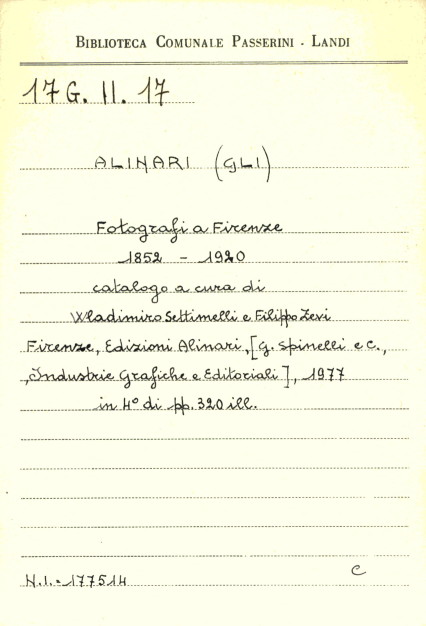 BIBLIOTECA COMUNALE PASSERINI - LANDI
17 G. II. 17
ALINARI (GLI)
Fotografi a Firenze
1852 - 1920
catalogo a cura di
Wladimiro Settimelli e Filippo Zevi
Firenze, Edizioni Alinari, [G. Spinelli e C.,
Industrie Grafiche e Editoriali], 1977
in 4° di pp. 320 ill.
C
N.I. - 177514